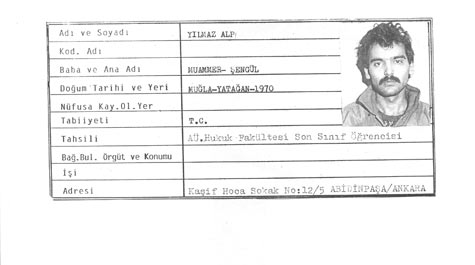 Adı ve Soyadı YILMAZ ALP
Kod. Adı
Baba ve Ana Adı MUAMMER- ŞENGÜL
Doğum Tarihi ve Yeri MUĞLA-YATAĞAN-1970
Nüfusa Kay.Ol.Yer
Tabiiyeti T.C.
Tahsili AÜ.Hukuk Fakültesi Son Sınıf Öğrencisi
Bağ.Bul. Örgüt ve Konumu
İşi
Adresi Kaşif Hoca Sokak No:12/5 ABİDİNPAŞA/ANKARA